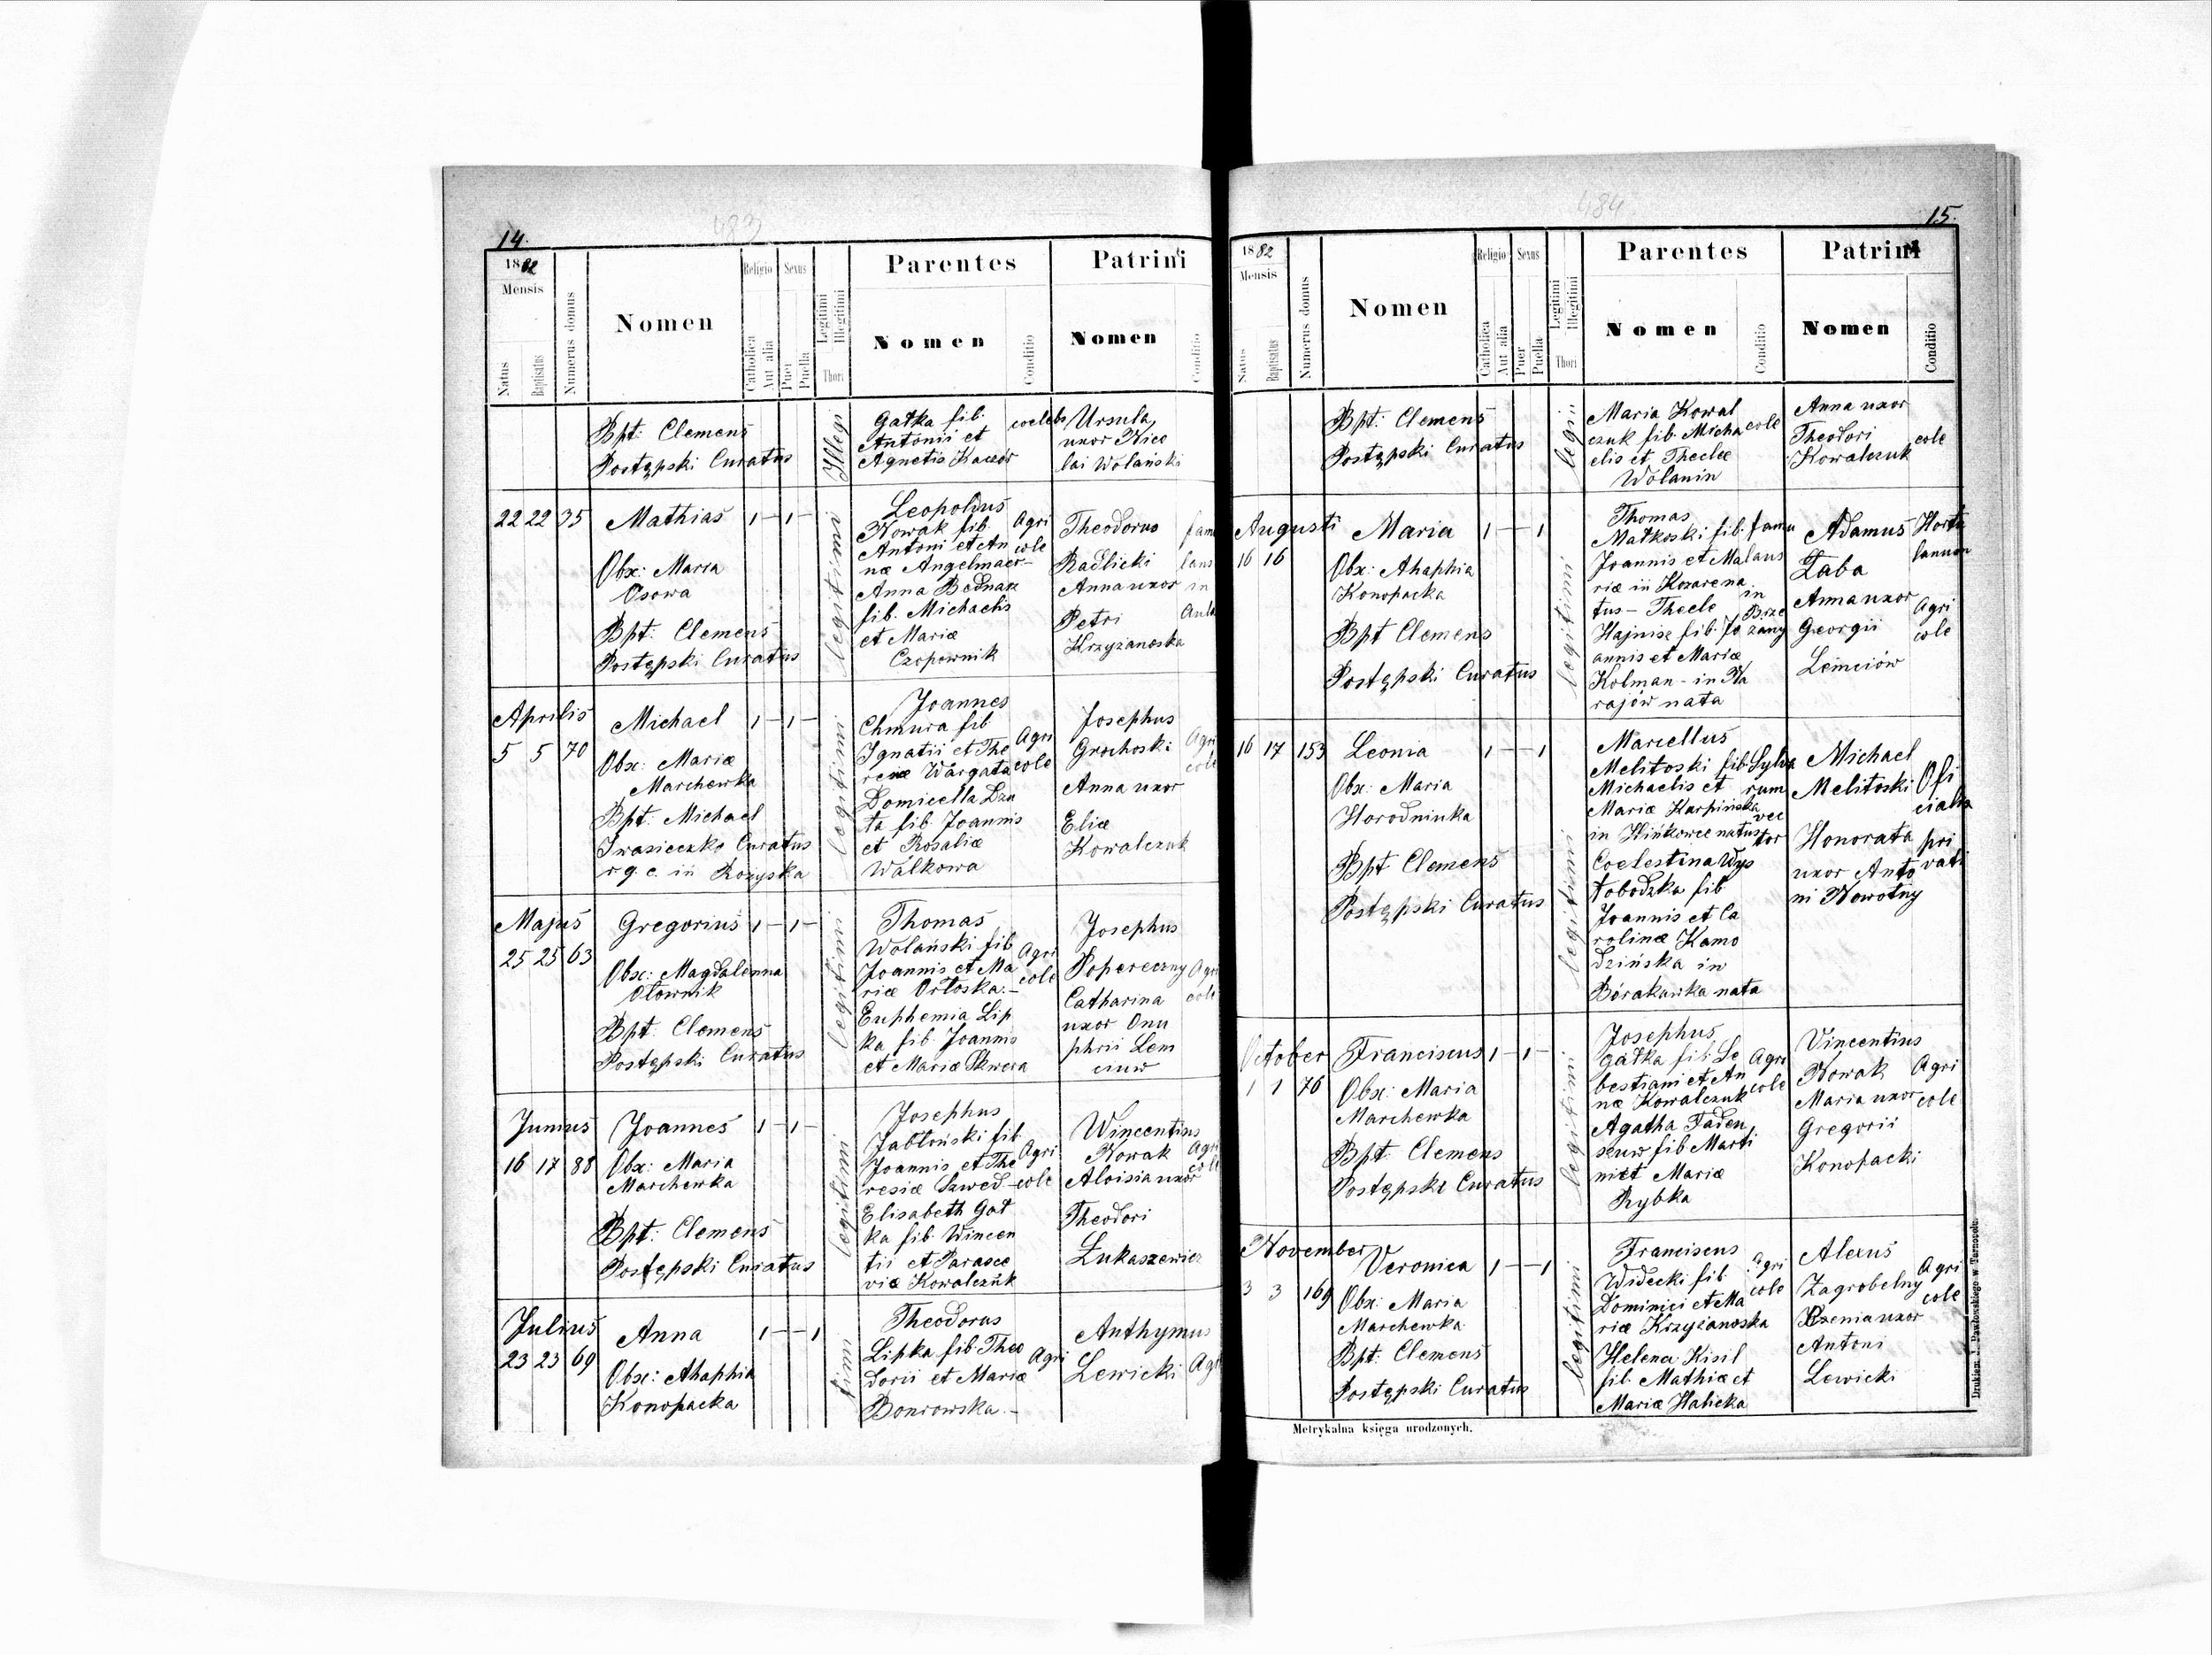 483
14.
1882
Mensis
Natus
Baptisatus
Numerus domus
Nomen
Religio
Catholica
Aut alia
Sexus
Puer
Puella
Legitimi
Illegitimi
Thori
Parentes
Nomen
Conditio
Patrini
Nomen
Conditio
Bpt: Clemens
Postępski Curatus
Illegi
Gałka fil.
Antonii et
Agnetis Kaczor
coelebs
Ursula
uxor Nico
lai Wolański
22 22 35
Mathias 1 — 1 —
Obx: Maria
Osowa
Bpt: Clemens
Postępski Curatus
legitimi
Leopoldus
Nowak fil.
Antoni et An
næ Angelmaer-
Anna Bednarz
fil. Michaelis
et Mariæ
Czopownik
Agri
cole
Theodorus
Radlicki
Anna uxor
Petri
Krzyżanoska
fam
lans
in
Aula
Aprilis
5 5 70
Michael 1 — 1 —
Obx: Mariæ
Marchewka
Bpt: Michael
Iwasieczko Curatus
r. g. c. in Rożyska
legitimi
Joannes
Chmura fil
Ignatii et The
resiæ Wargata
Domicella Dzu
ta fil. Joannis
et Rosaliæ
Walkowa
Agri
cole
Josephus
Grochoski
Anna uxor
Eliæ
Kowalczuk
Agri
cole
Majus
25 25 63
Gregorius 1 — 1 —
Obx: Magdalenna
Ołownik
Bpt. Clemens
Postępski Curatus
legitimi
Thomas
Wolański fil
Joannis et Ma
riæ Ortoska.—
Euphemia Lip
ka fil. Joannis
et Mariæ Skwera
Agri
cole
Josephus
Popereczny
Catharina
uxor Onu
phrii Lem
ciuw
Agri
cole
Junius
16 17 88
Joannes 1 — 1 —
Obx: Maria
Marchewka
Bpt: Clemens
Postępski Curatus
legitimi
Josephus
Jabłoński fil.
Joannis et The
resiæ Szwed-
Elisabeth Gał
ka fil. Wincen
tii et Parasce
viæ Kowalczuk
Agri
cole
Wincentius
Nowak
Aloisia uxor
Theodori
Łukaszewicz
Agri
cole
Julius
23 23 69
Anna 1 — 1
Obx: Ahaphia
Konopacka
timi
Theodorus
Lipka fil. Theo
dorii et Mariæ
Bonrowska.—
Agri
Anthymus
Lewicki
Agri
484
15.
1882
Mensis
Natus
Baptisatus
Numerus domus
Nomen
Religio
Catholica
Aut alia
Sexus
Puer
Puella
Legitimi
Illegitimi
Thori
Parentes
Nomen
Conditio
Patrini
Nomen
Conditio
Bpt: Clemens
Postępski Curatus
legiti
Maria Kowal
czuk fil. Micha
elis et Theclæ
Wolanin
cole
Anna uxor
Theodori
Kowalczuk
cole
Augusti
16 16
Maria 1 — 1
Obx: Ahaphia
Konopacka
Bpt Clemens
Postępski Curatus
legitimi
Thomas
Małkoski fil.
Joannis et Ma
riæ in Kozarena
tus- Thecle
Hajnisz fil. Jo
annis et Mariæ
Kolman- in Na
rajów nata
famu
laus
in
Brze
żany
Adamus
Żaba
Anna uxor
Georgii
Lemciów
Hortu
lanuon
Agri
cole
16 17 153
Leonia 1 — 1
Obx: Maria
Horodniuka
Bpt Clemens
Postępski Curatus
legitimi
Marcellus
Melitoski fil.
Michaelis et
Mariæ Karpińska
in Hińkowce natus
Coelestina Wys
łobodzka fil
Joannis et Ca
rolinæ Kamo
dzińska in
Bórakawka nata
Sylva
rum
vec
tor
Michael
Melitoski
Honorata
uxor Anto
ni Nowotny
Ofi
cialis
pri
vati
October
1 1 76
Franciscus 1 — 1 —
Obx: Maria
Marchewka
Bpt: Clemens
Postępski Curatus
legitimi
Josephus
Gałka fil. Se
bestiani et An
næ Kowalczuk
Agatha Faden
szuw fil Marti
ni et Mariæ
Rybka
Agri
cole
Vincentius
Nowak
Maria uxor
Gregorii
Konopacki
Agri
cole
November
3 3 169
Veronica 1 — 1
Obx: Maria
Marchewka
Bpt: Clemens
Postępski Curatus
legitimi
Franciscus
Widecki fil.
Dominici et Ma
riæ Krzyżanoska
Helena Kisil
fil. Mathiæ et
Mariæ Halicka
Agri
cole
Alexus
Zagrobelny
Xzenia uxor
Antoni
Lewicki
Agri
cole
Metrykalna księga urodzonych.
Drukiem J. Pawłowskiego w Tarnopolu.